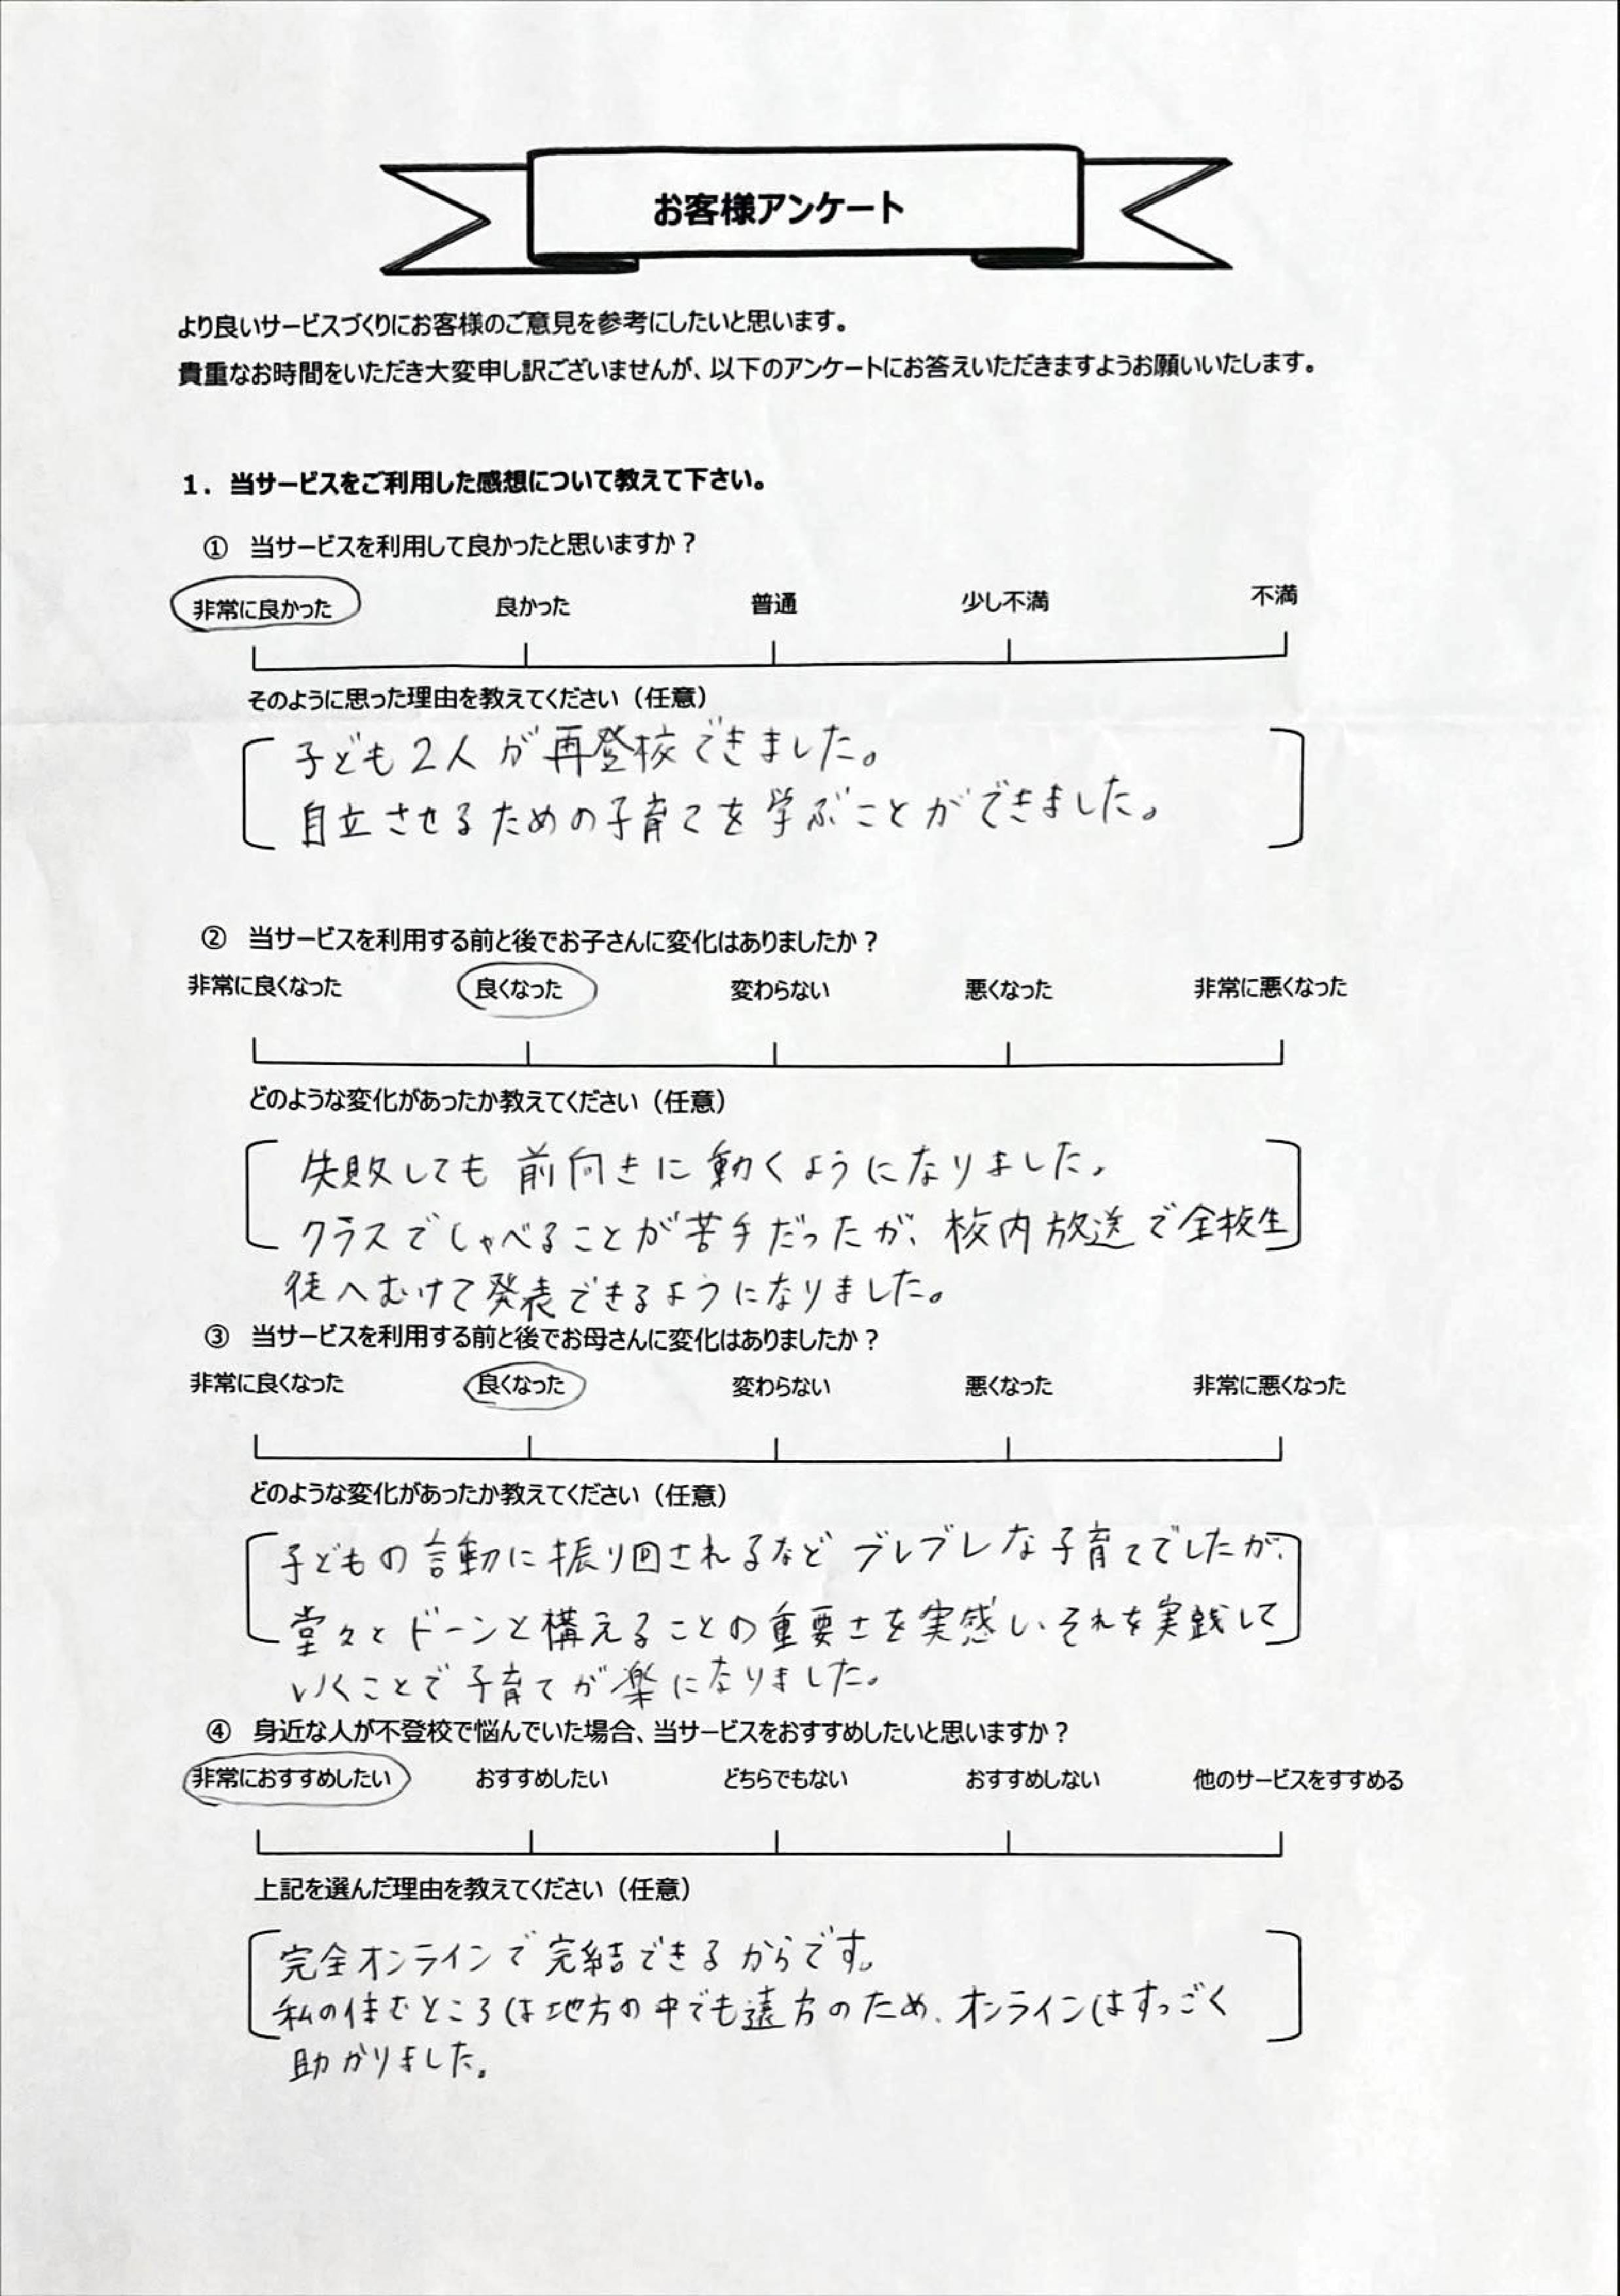 お客様アンケート
より良いサービスづくりにお客様のご意見を参考にしたいと思います。
貴重なお時間をいただき大変申し訳ございませんが、以下のアンケートにお答えいただきますようお願いいたします。
1．当サービスをご利用した感想について教えて下さい。
① 当サービスを利用して良かったと思いますか？
非常に良かった 良かった 普通 少し不満 不満
そのように思った理由を教えてください（任意）
子ども2人が再登校できました。
自立させるための子育てを学ぶことができました。
② 当サービスを利用する前と後でお子さんに変化はありましたか？
非常に良くなった 良くなった 変わらない 悪くなった 非常に悪くなった
どのような変化があったか教えてください（任意）
失敗しても前向きに動くようになりました。
クラスでしゃべることが苦手だったが、校内放送で全校生
徒へむけて発表できるようになりました。
③ 当サービスを利用する前と後でお母さんに変化はありましたか？
非常に良くなった 良くなった 変わらない 悪くなった 非常に悪くなった
どのような変化があったか教えてください（任意）
子どもの言動に振り回されるなどブレブレな子育てでしたが、
堂々とドーンと構えることの重要さを実感し、それを実践して
いくことで子育てが楽になりました。
④ 身近な人が不登校で悩んでいた場合、当サービスをおすすめしたいと思いますか？
非常におすすめしたい おすすめしたい どちらでもない おすすめしない 他のサービスをすすめる
上記を選んだ理由を教えてください（任意）
完全オンラインで完結できるからです。
私の住むところは地方の中でも遠方のため、オンラインはすっごく
助かりました。